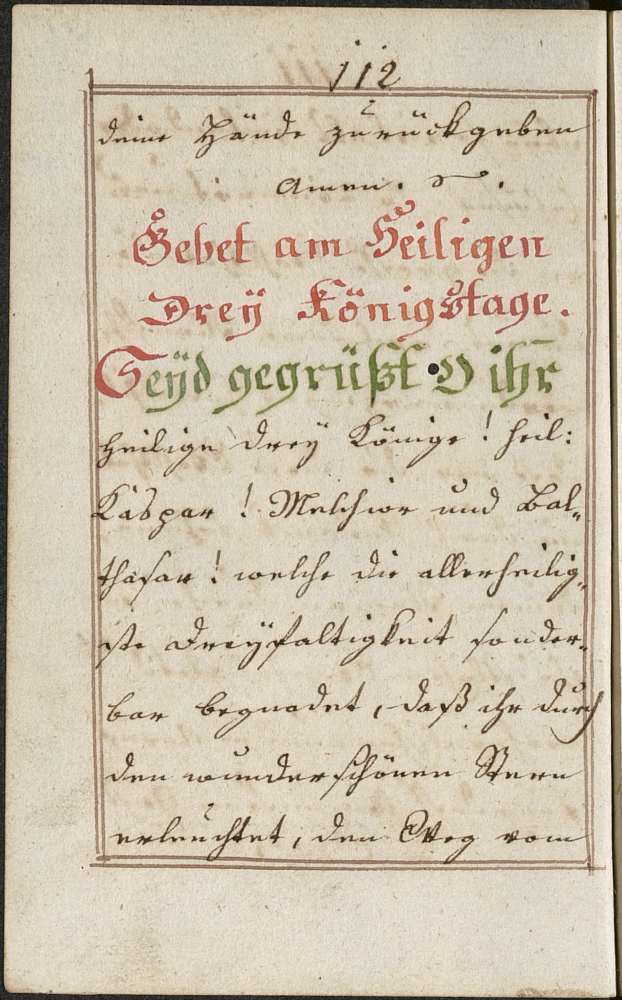 112
deine Hände zurückgeben
Amen.
Gebet am Heiligen
Dreÿ Königstage.
Seÿd gegrüßt O ihr
heilige dreÿ Könige! heil:
Kaspar! Melchior und Bal„
thasar! welche die allerheilig„
ste Dreÿfaltigkeit sonder„
bar begnadet, daß ihr durch
den wunderschönen Stern
erleuchtet, den Weg vom